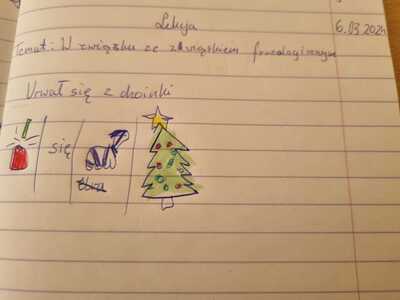 Lekcja
6.03.2024
Temat: W związku ze związkiem frazeologicznym
Urwał się z choinki
się